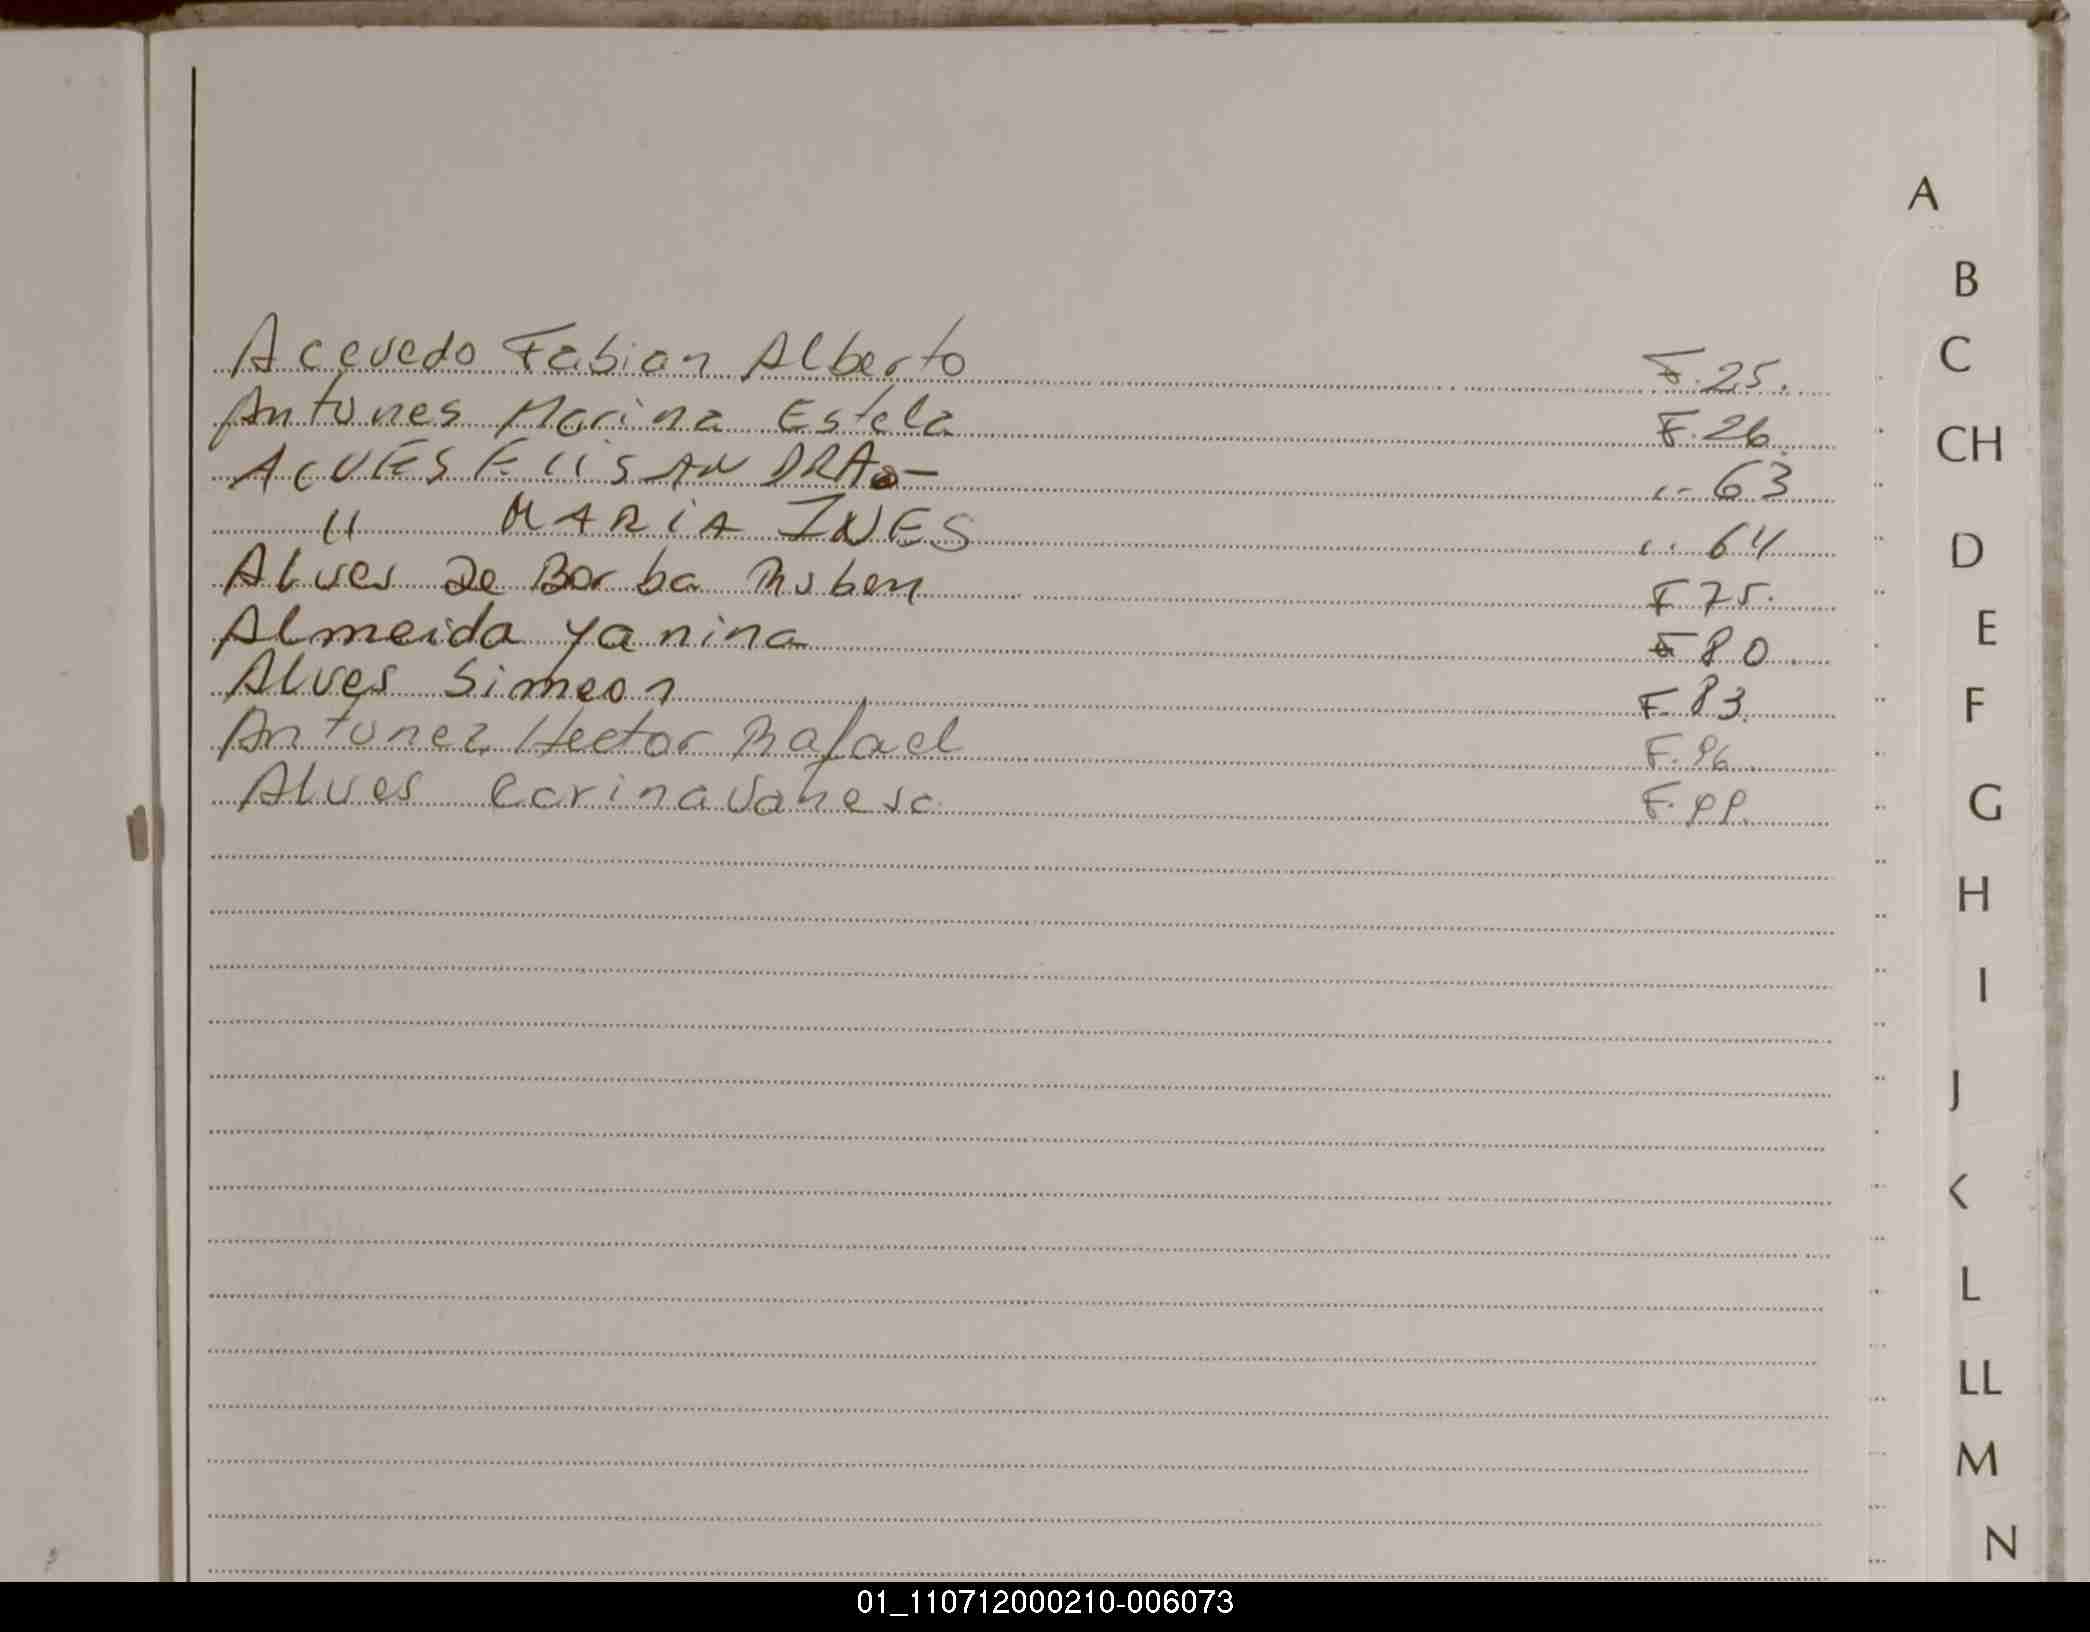 Acevedo Fabian Alberto F.25.
Antunes Marina Estela F.26.
ALVES ELISANDRA.- " 63
" MARIA INES " 64
Alves De Borba Ruben F 75.
Almeida Yanina F 80
Alves Simeon F. 83.
Antunez Hector Rafael F. 96.
Alves Carina Vanesa F. 99.
A
B
C
CH
D
E
F
G
H
I
J
K
L
LL
M
N
01_110712000210-006073